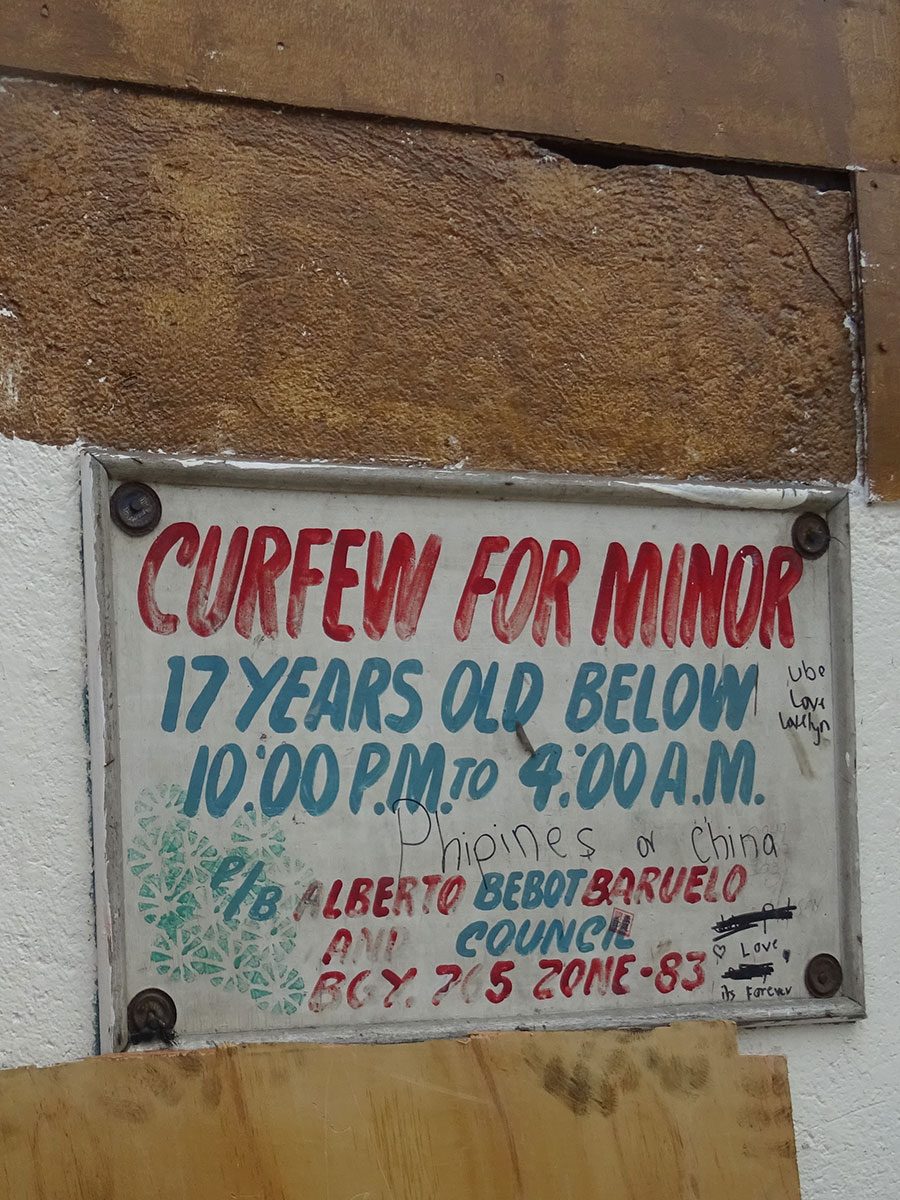 CURFEW FOR MINOR
17 YEARS OLD BELOW
10:00 P.M. TO 4:00 A.M.
ube
Love
Lovelyn
Phipines or China
P/B ALBERTO BEBOT BARUELO
AND COUNCIL
BGY. 765 ZONE-83
Love
its Forever